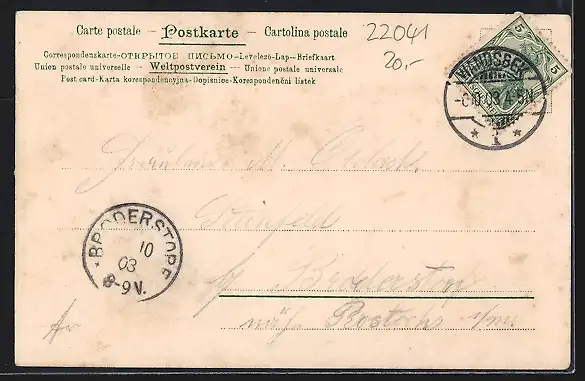 Carte postale – Postkarte – Cartolina postale
Correspondenzkarte-ОТКРЫТОЕ ПИСЬМО-Levelezö-Lap-Briefkaart
Union postale universelle – Weltpostverein – Unione postale universale
Post card-Karta korespondencyjna-Dopisnice-Korespondenční lístek
22041
20,-
5 5
WANDSBEK
03 4-5N
* 1 *
Fräulein M.
Steinfeld
b/ Broderstorf
nähe Rostock i/M.
BRODERSTORF
10
03
8-9V.